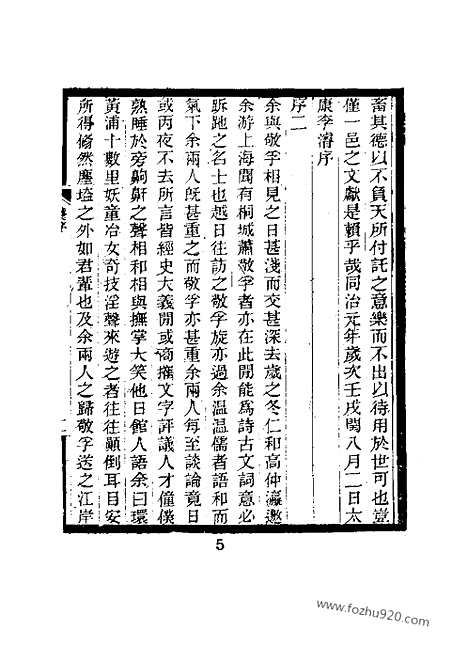 畜其德以不負天所付託之意樂而不出以待用於世可也豈
僅一邑之文獻是賴乎哉同治元年歲次壬戌閏八月二日太
康李濬序
序二
余與敬孚相見之日甚淺而交甚深去歲之冬仁和高仲瀛邀
余游上海聞有桐城蕭敬孚者亦在此間能為詩古文詞意必
跅弛之名士也越日往訪之敬孚旋亦過余溫溫儒者語和而
氣下余兩人既甚重之而敬孚亦甚重余兩人每至談論竟日
或丙夜不去所言皆經史大義閒或商搉文字評議人才僮僕
熟睡於旁齁鼾之聲相和相與撫掌大笑他日館人語余曰環
黃浦十數里妖童冶女奇技淫聲來遊之者往往顚倒耳目安
所得翛然塵壒之外如君輩也及余兩人之歸敬孚送之江岸
序
5
www.fozhu920.com